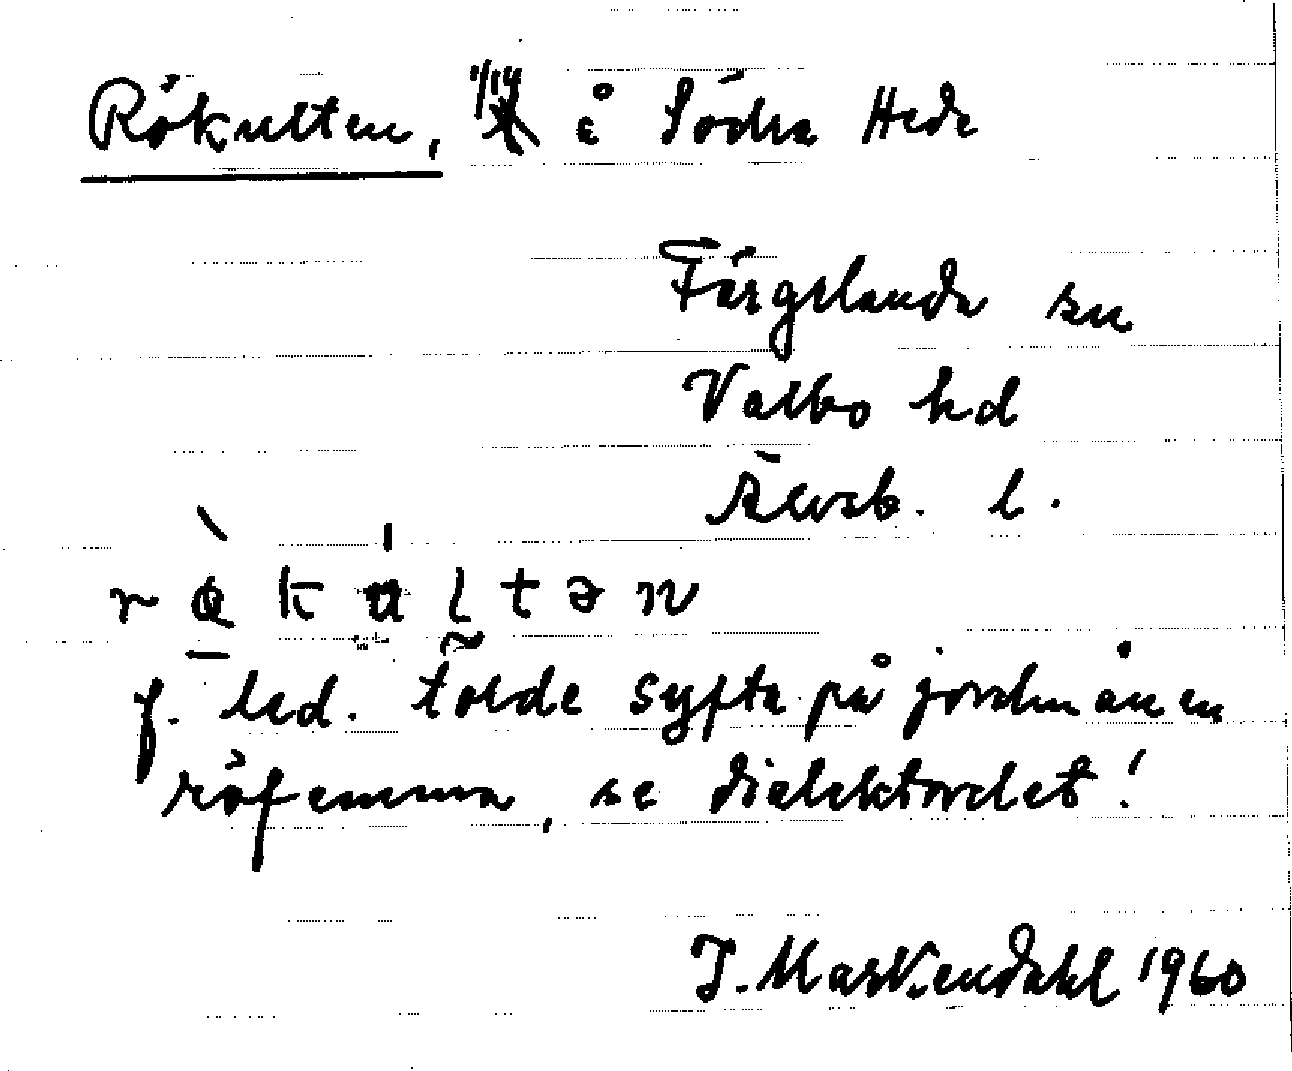 Rökulten, 1/14 å Södra Hede
Färgelanda sn
Valbo hd
Älvsb. l.
f. led. torde syfta på jordmånen
röfemma, se dialektordet!
J. Markendahl 1960